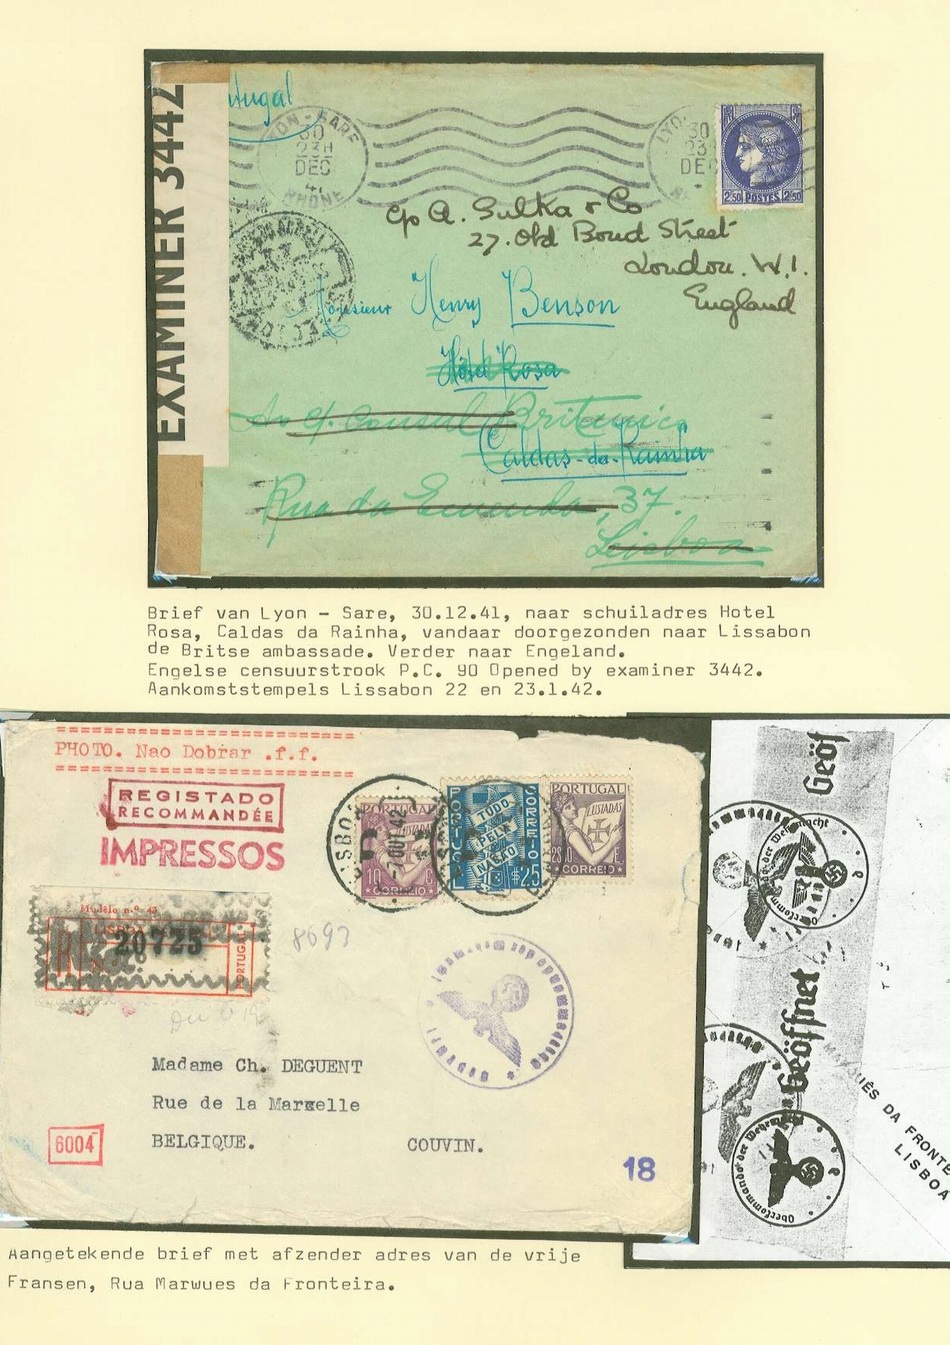 EXAMINER 3442
tugal
LYON - GARE
30
23H
DEC
41
RHÔNE
30
23
DEC
2,50 POSTES 2,50
c/o A. Sulka & Co
27. Old Bond Street
London. W.1.
England
Monsieur Henry Benson
Hôtel Rosa
Av. c/. Consul Britanico
Caldas-da-Rainha
Rua da Emenda, 37.
Lisboa
Brief van Lyon - Sare, 30.12.41, naar schuiladres Hotel
Rosa, Caldas da Rainha, vandaar doorgezonden naar Lissabon
de Britse ambassade. Verder naar Engeland.
Engelse censuurstrook P.C. 90 Opened by examiner 3442.
Aankomststempels Lissabon 22 en 23.1.42.
PHOTO. Nao Dobrar .f.f.
REGISTADO
RECOMMANDÉE
IMPRESSOS
PORTUGAL
LUSIADAS
10 C
CORREIO
PORTUGAL
TUDO
PELA
NAÇÃO
CORREIO
1$25
PORTUGAL
LUSIADAS
CORREIO
Modelo n.º 43
LISBOA
R
20725
PORTUGAL
8693
Madame Ch. DEGUENT
Rue de la Marzelle
BELGIQUE. COUVIN.
6004
18
Geöf
Oberkommando der Wehrmacht
Geöffnet
Oberkommando der Wehrmacht
MARQUÊS DA FRONTE
LISBOA
Aangetekende brief met afzender adres van de vrije
Fransen, Rua Marwues da Fronteira.